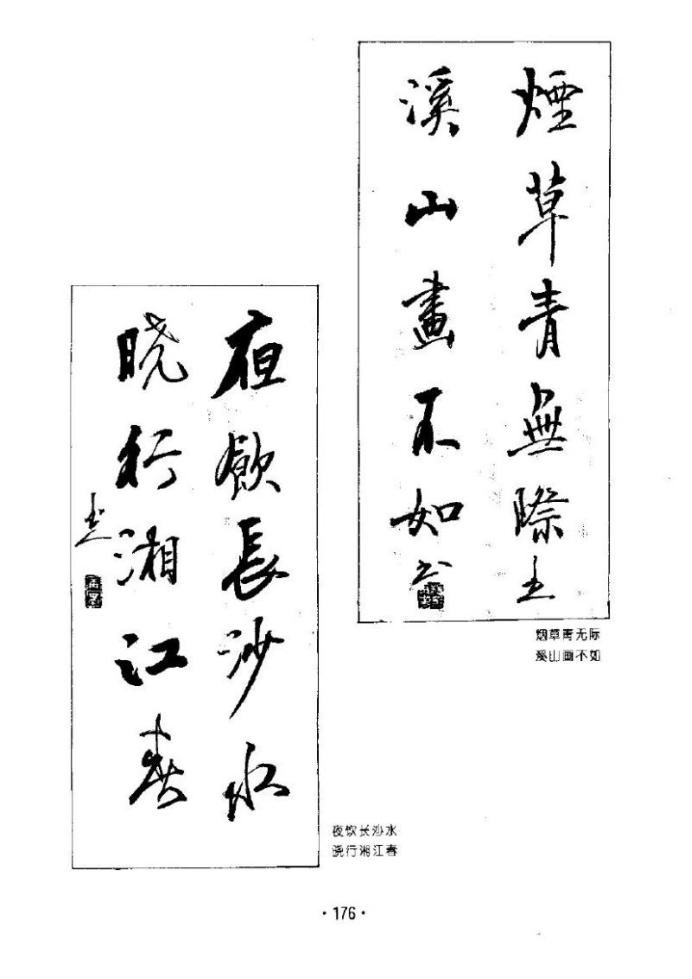 煙草青無際
溪山畫不如
烟草青无际
溪山画不如
夜飲長沙水
晓行湘江春
夜饮长沙水
晓行湘江春
·176·